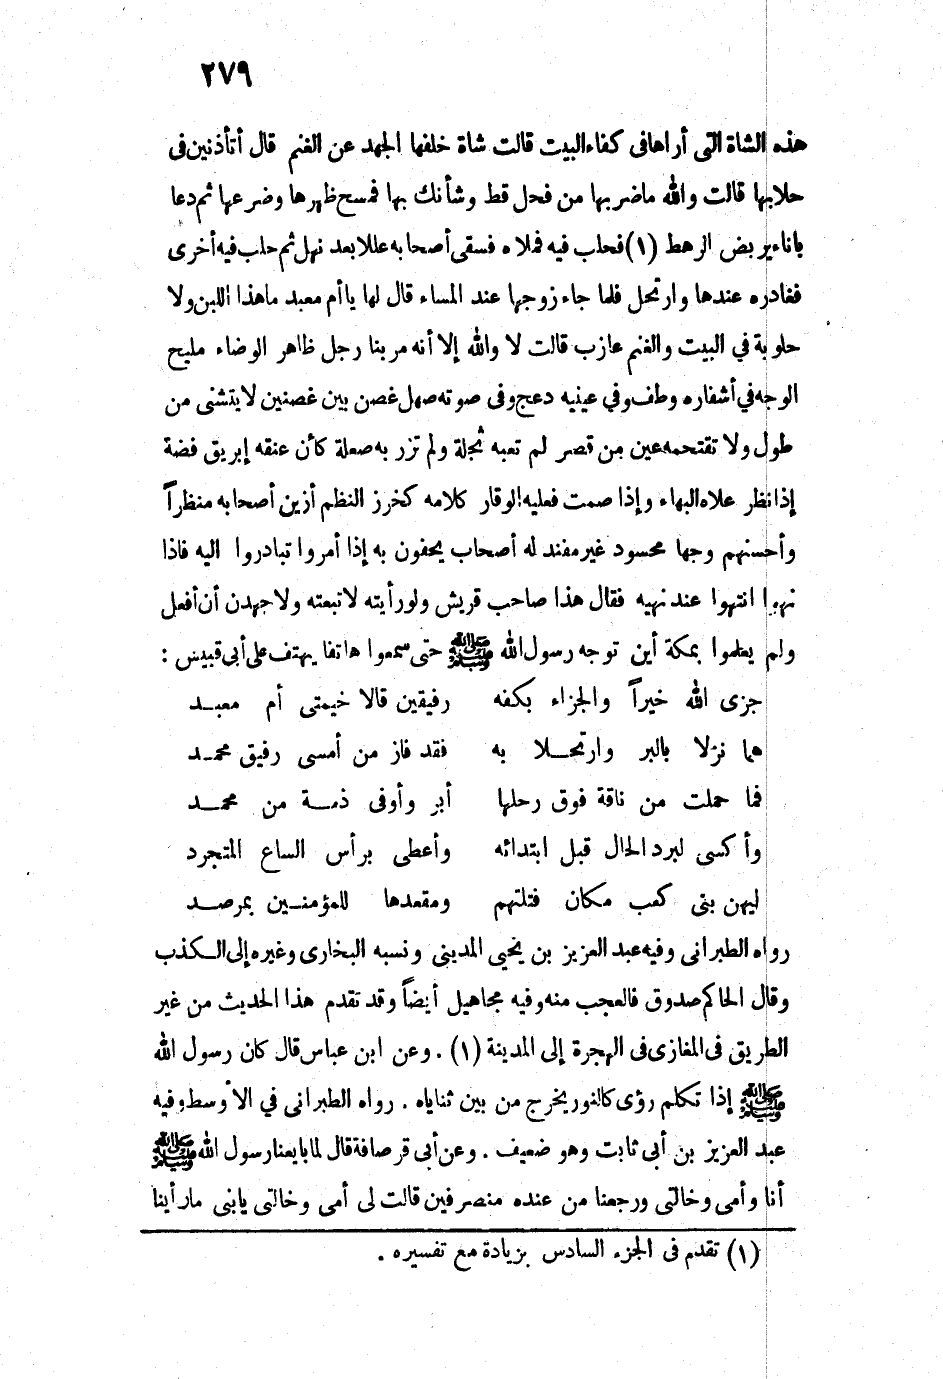 ٢٧٩
هذه الشاة التى أراها فى كفاء البيت قالت شاة خلفها الجهد عن الغنم قال أتأذنين فى
حلابها قالت والله ماضربها من فحل قط وشأنك بها فمسح ظهرها وضرعها ثم دعا
باناء يربض الرهط (١) فحلب فيه فملاه فسقى أصحابه عللا بعد نهل ثم حلب فيه أخرى
فغادره عندها وارتحل فلما جاء زوجها عند المساء قال لها ياأم معبد ماهذا اللبن ولا
حلوبة في البيت والغنم عازب قالت لا والله إلا أنه مر بنا رجل ظاهر الوضاء مليح
الوجه في أشفاره وطف وفي عينيه دعج وفى صوته صهل غصن بين غصنين لايتشنى من
طول ولا تقتحمه عين من قصر لم تعبه ثجلة ولم تزر به صعلة كأن عنقه إبريق فضة
إذا نظر علاه البهاء وإذا صمت فعليه الوقار كلامه كخرز النظم أزين أصحابه منظراً
وأحسنهم وجها محسود غير مفند له أصحاب يحفون به إذا أمروا تبادروا اليه فاذا
نهوا انتهوا عند نهيه فقال هذا صاحب قريش ولو رأيته لاتبعته ولاجهدن أن أفعل
ولم يعلموا بمكة أين توجه رسول الله ﷺ حتى سمعوا هاتفا يهتف على أبى قبيس :
جزى الله خيراً والجزاء بكفه رفيقين قالا خيمتى أم معبـد
هما نزلا بالبر وارتحـلا به فقد فاز من أمسى رفيق محمـد
فما حملت من ناقة فوق رحلها أبر وأوفى ذمـة من محمـد
وأكسى لبرد الحال قبل ابتدائه وأعطى برأس الساع المتجرد
ليهن بنى كعب مكان فتلتهم ومقعدها للمؤمنـين بمرصـد
رواه الطبرانى وفيه عبد العزيز بن يحيى المدينى ونسبه البخارى وغيره إلى الـكذب
وقال الحاكم صدوق فالعجب منه وفيه مجاهيل أيضاً وقد تقدم هذا الحديث من غير
الطريق فى المغازى فى الهجرة إلى المدينة (١) . وعن ابن عباس قال كان رسول الله
ﷺ إذا تكلم رؤى كالنور يخرج من بين ثناياه . رواه الطبرانى في الأوسط وفيه
عبد العزيز بن أبي ثابت وهو ضعيف . وعن أبى قرصافة قال لما بايعنا رسول الله ﷺ
أنا وأمى وخالتى ورجعنا من عنده منصرفين قالت لى أمى وخالتى يابنى مارأينا
(١) تقدم فى الجزء السادس بزيادة مع تفسيره .